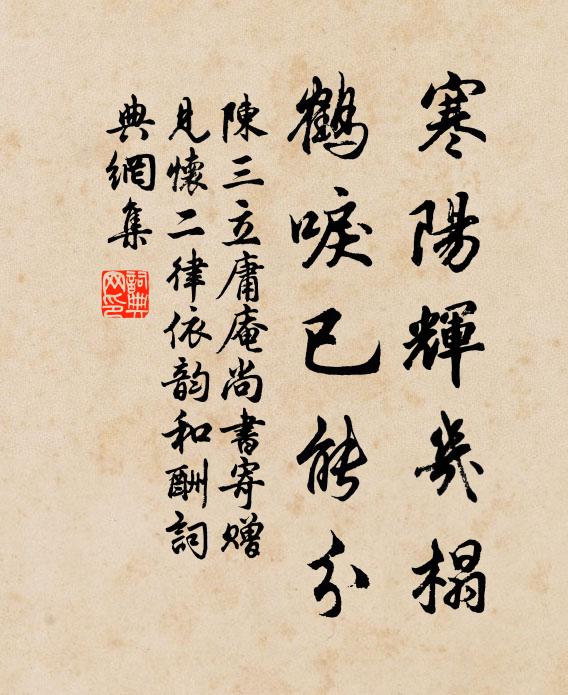 寒陽輝几榻
鶴唳已能分
陳三立庸庵尚書寄贈
見懷二律依韵和酬詞
典網集
詞典网印